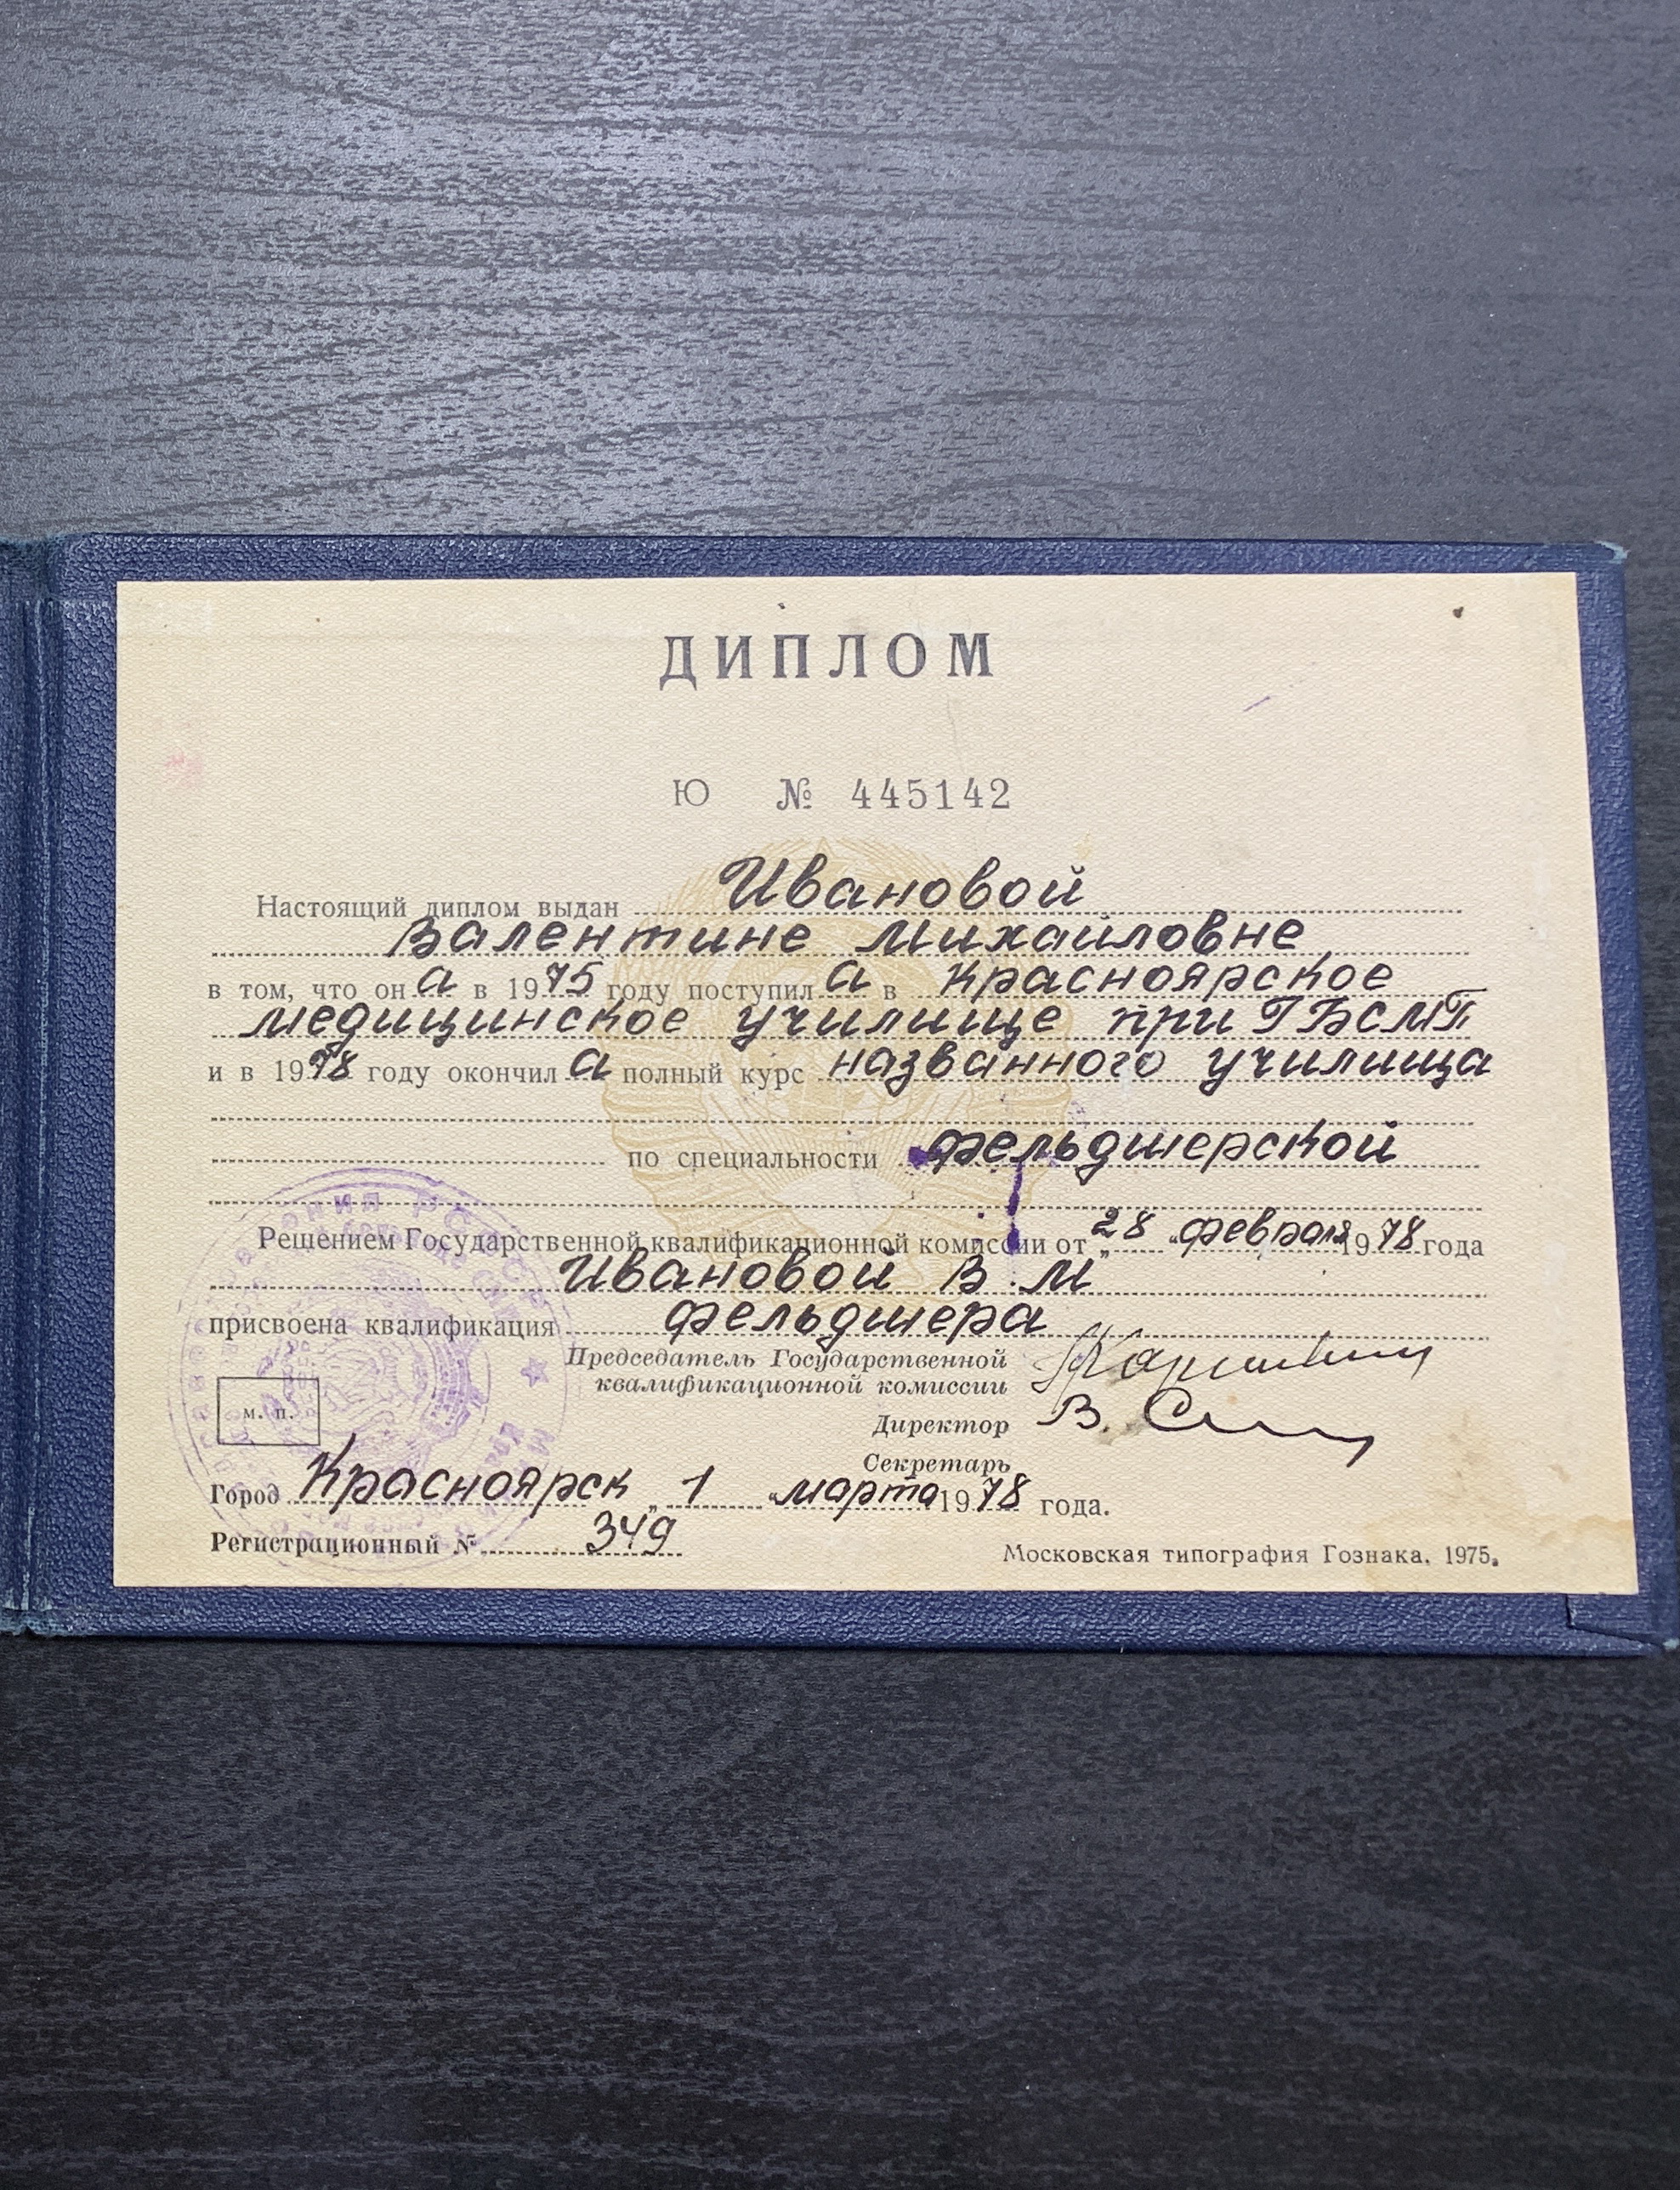 ДИПЛОМ
Ю № 445142
Настоящий диплом выдан Ивановой
Валентине Михайловне
в том, что он а в 1975 году поступил а в Красноярское
медицинское училище при ГБСМП
и в 1978 году окончил а полный курс названного училища
по специальности фельдшерской
Решением Государственной квалификационной комиссии от „28“ февраля 1978 года
Ивановой В.М
присвоена квалификация фельдшера
Председатель Государственной
квалификационной комиссии
м. п.
Директор В.
Секретарь
Город Красноярск „1 “ марта 1978 года.
Регистрационный № 349
Московская типография Гознака. 1975.